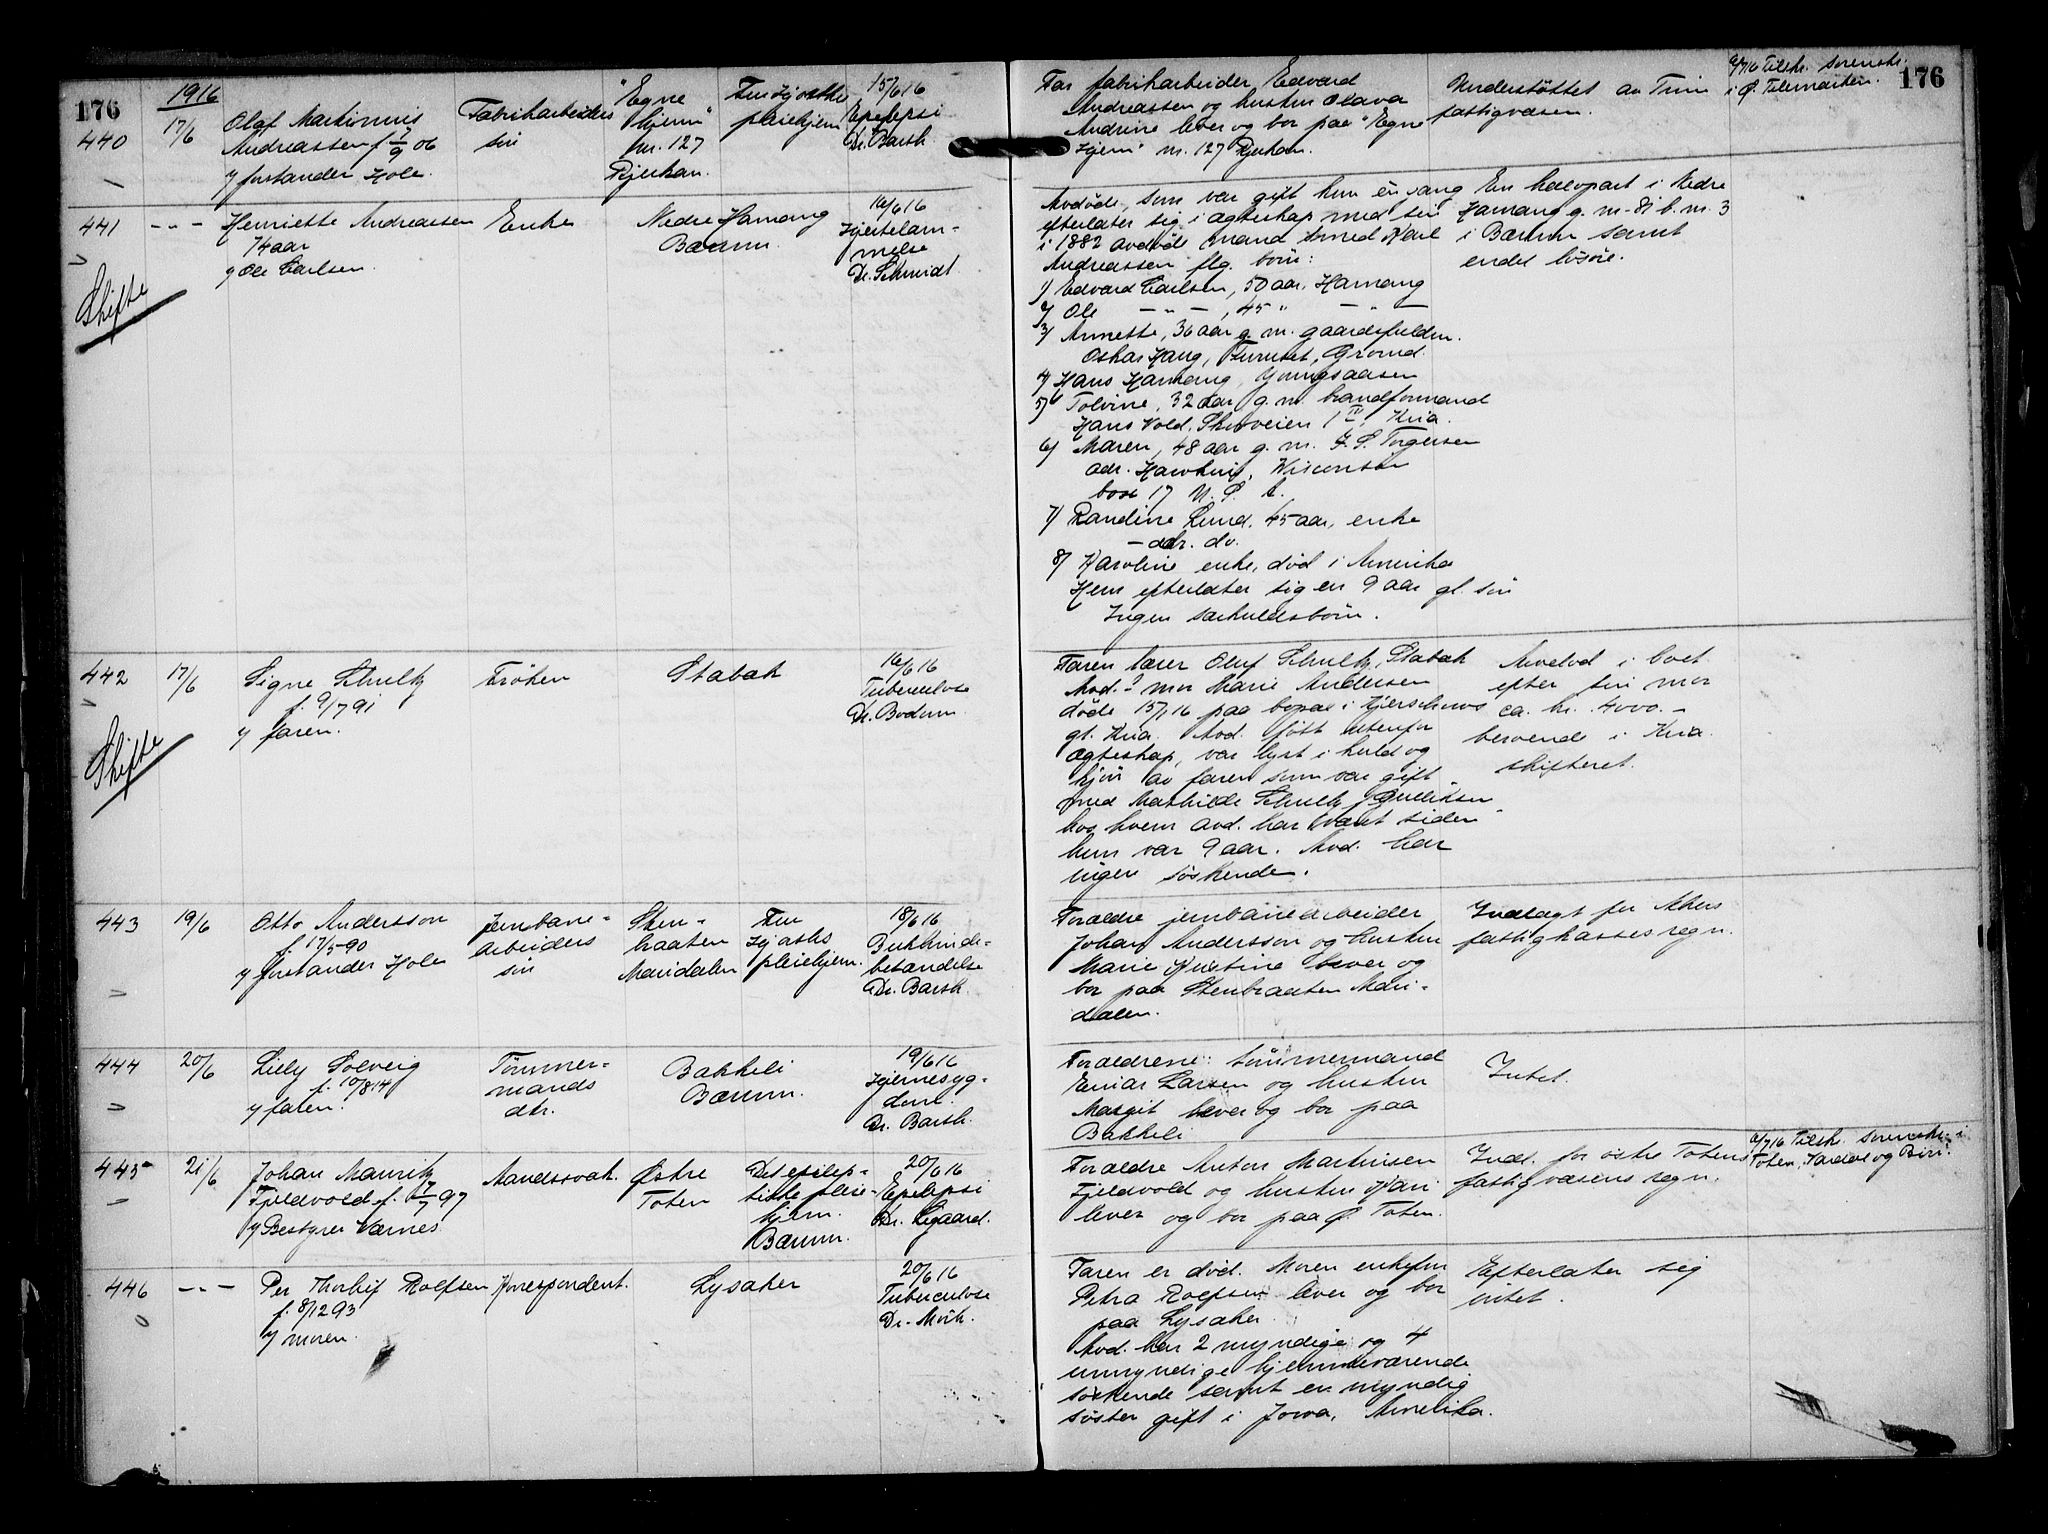 176
1916
440
17/6
Olaf Martinius
Andreassen f. 7/9 06
v/ forstander Hole.
Fabrikarbeiders
sön
"Egne
hjem"
nr. 127
Rjukan.
pleiehjem
15/6 16
Epelepsi
Dr. Barth
Far fabrikarbeider Edvard
Andreassen og hustru Olava
Andrine lever og bor paa "Egne
Hjem" nr. 127 Rjukan.
Understöttet av Tinn
fattigvæsen.
6/7 16 Tilskr. sorenskr.
i Ø. Telemarken.
176
441
- " -
Henriette Andreassen
74 aar
v/ Ole Carlsen.
Enke
Nedre Hamang
Bærum.
16/6 16
Hjertelam-
melse
Dr. Schmidt.
Skifte
Avdöde, som var gift kun én gang
efterlater sig i ægteskap med sin
i 1882 avdöde mand Karl
Andreassen flg. börn:
1) Edvard Carlsen, 50 aar, Hamang
2) Ole - " - , 45 " - " -
3) Annette, 36 aar g. m. gaardsfuldm.
Oskar Haug, Furuset, Grorud.
4) Hans Hamang,
5) Tolvine, 32 aar g. m. brandformand
Hans Vold, 1 IV, Kria.
6) Maren, 48 aar g. m. Torgersen
adr. Hawkins, Wisconsin
box 17 U. S. A.
7) Randine Lund. 45 aar, enke
- adr. do.
8) Karoline enke, död i Amerika
Hun efterlater sig en 9 aar gl. sön
Ingen særkuldsbörn.
En halvpart i Nedre
Hamang g. nr. 81 b. nr. 3
i Bærum samt
endel lösöre.
442
17/6
Signe Schultz
f. 9/7 91
v/ faren.
Fröken
Stabæk
16/6 16
Tuberculose
Dr. Bodom.
Skifte
Faren lærer Oluf Schultz, Stabæk
Avd.s mor Marie Andersen
döde 15/1 16 paa bopæl i Hjerschows
gt. Kria. Avd. född utenfor
ægteskap, var lyst i kuld og
kjön av faren som var gift
med Mathilde Schultz f. Gulliksen
hos hvem avd. har været siden
hun var 9 aar. Avd. har
ingen söskende.
Arvelod i boet
efter sin mor
ca. kr. 4000.-
beroende i Kria
skifteret.
443
19/6
Otto Andersson
f. 17/5-90
v/ forstander Hole
Jernbane-
arbeiders
sön
Sten-
braaten
Maridalen
pleiehjem.
18/6 16
Bukhinde-
betændelse
Dr. Barth.
Forældre jernbanearbeider
Johan Andersson og hustru
Marie Kristine lever og
bor paa Stenbraaten Mari-
dalen.
Indlagt for Akers
fattigkasses regn.
444
20/6
Lilly Solveig
f. 10/8 14
v/ faren.
Tömmer-
mands
dtr.
Bakkeli
Bærum.
19/6 16
Hjernesyg-
dom.
Dr. Barth.
Forældrene: tömmermand
Einar Larsen og hustru
Margit lever og bor paa
Bakkeli
Intet.
445
21/6
Johan Mauritz
Fjeldvold f. 17/7 97
v/ Bestyrer Værnes.
Aandssvak.
Østre
Toten
Det epilep-
tiske pleie-
hjem.
Bærum.
20/6 16
Epelepsi
Dr. Lygaard.
Forældre Anton Martinsen
Fjeldvold og hustru Kari
lever og bor paa Ø. Toten.
Indl. for östre Totens
fattigvæsens regn.
6/7 16 Tilskr. sorenskr. i
Toten, Vardal og Biri.
446
- " -
Per Thorleif Rolfsen
f. 8/12 93
v/ moren.
Korrespondent.
Lysaker
20/6 16
Tuberculose
Dr. Mörk.
Faren er död. Moren enkefru
Petra Rolfsen lever og bor
paa Lysaker.
Avd. har 2 myndige og 4
umyndige hjemmeværende
söskende samt en myndig
söster gift i Jowa, Amerika.
Efterlater sig
intet.